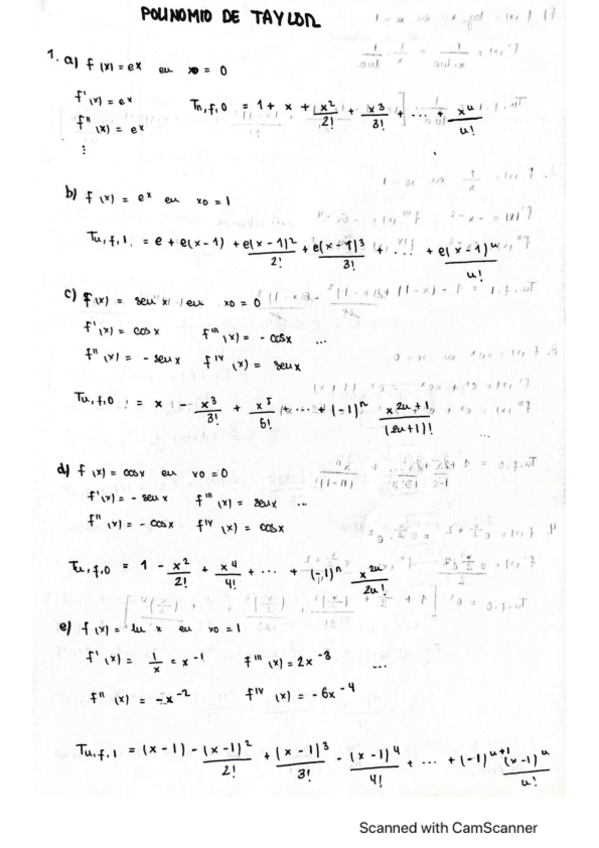 POLINOMIO DE TAYLOR
1. a) f(x) = e^x en x0 = 0
f'(x) = e^x
f''(x) = e^x
⋮
Tn,f,0 = 1 + x + x^2/2! + x^3/3! + ... + x^n/n!
b) f(x) = e^x en x0 = 1
Tn,f,1 = e + e(x-1) + e(x-1)^2/2! + e(x-1)^3/3! + ... + e(x-1)^n/n!
c) f(x) = sen x en x0 = 0
f'(x) = cosx f'''(x) = - cosx ...
f''(x) = - senx f^IV(x) = senx
Tn,f,0 = x - x^3/3! + x^5/5! + ... + (-1)^n x^(2n+1)/(2n+1)!
d) f(x) = cosx en x0 = 0
f'(x) = - senx f'''(x) = senx ...
f''(x) = - cosx f^IV(x) = cosx
Tn,f,0 = 1 - x^2/2! + x^4/4! + ... + (-1)^n x^2n/2n!
e) f(x) = ln x en x0 = 1
f'(x) = 1/x = x^-1 f'''(x) = 2x^-3 ...
f''(x) = -x^-2 f^IV(x) = -6x^-4
Tn,f,1 = (x-1) - (x-1)^2/2! + (x-1)^3/3! - (x-1)^4/4! + ... + (-1)^(n+1) (x-1)^n/n!
Scanned with CamScanner